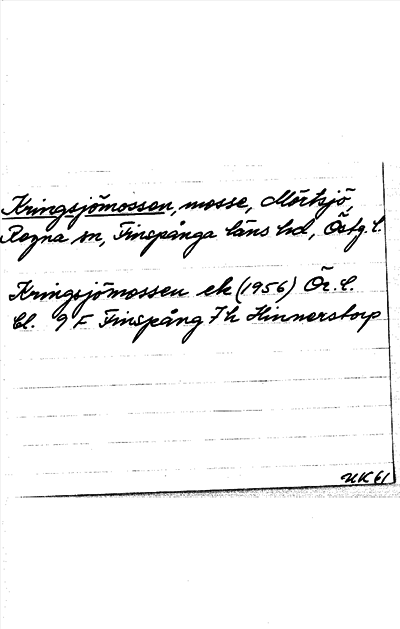 Kringsjömossen, mosse, Mörtsjö,
Regna sn, Finspånga läns hd, Östg. l.
Kringsjömossen ek (1956) Ör. l.
bl. 9 F Finspång 7 h Hinnerstorp
61